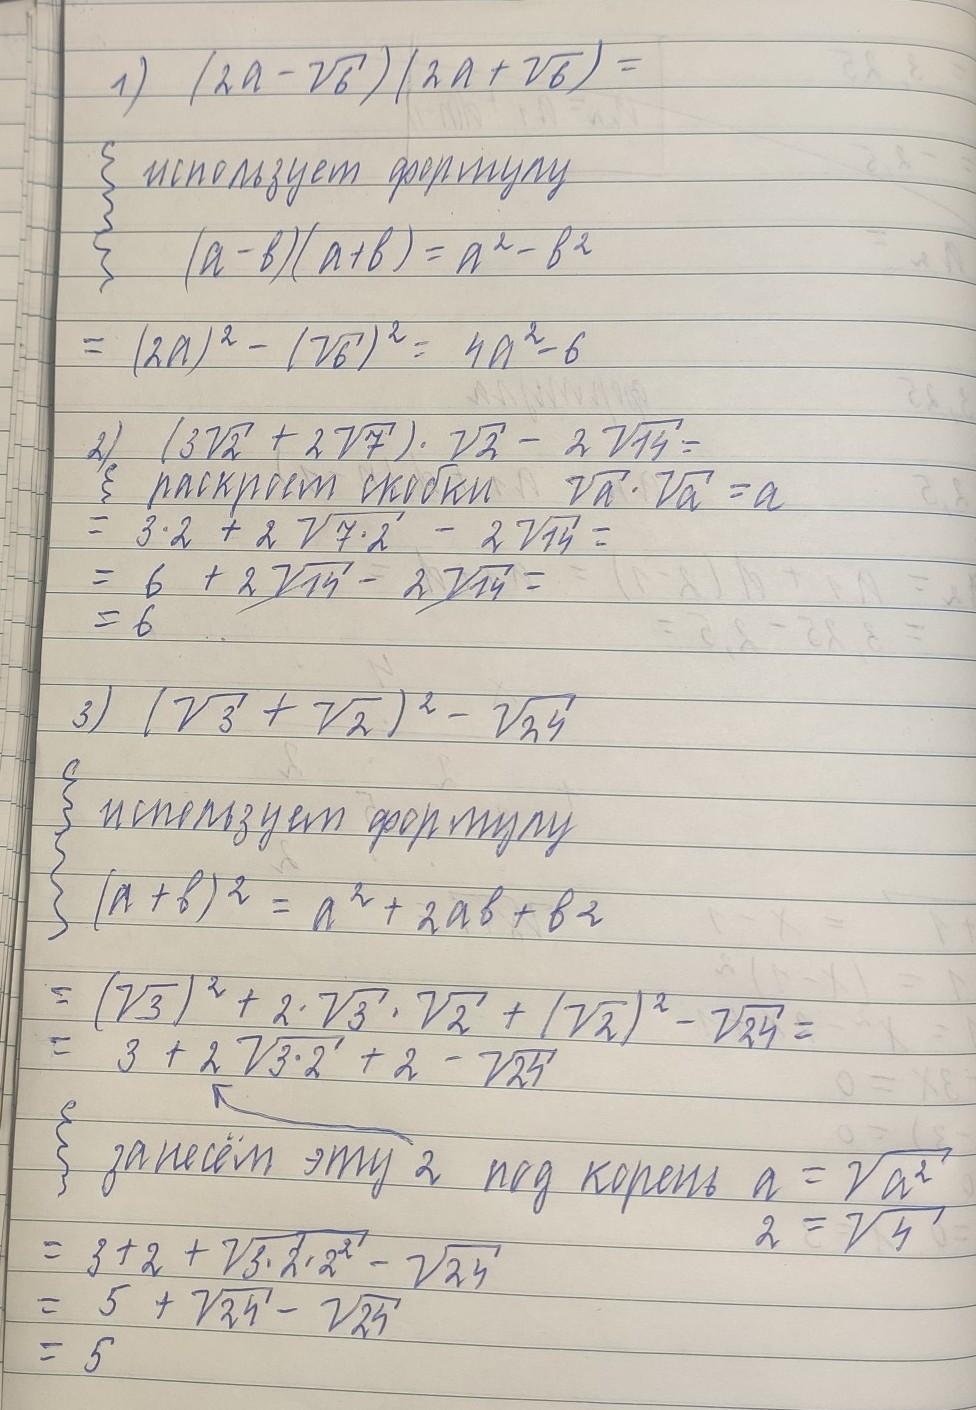 1) (2a - √6)(2a + √6) =
использует формулу
(a - b)(a + b) = a² - b²
= (2a)² - (√6)² = 4a² - 6
2) (3√2 + 2√7) · √2 - 2√14 =
раскроем скобки √a · √a = a
= 3·2 + 2√7·2 - 2√14 =
= 6 + 2√14 - 2√14 =
= 6
3) (√3 + √2)² - √24
используем формулу
(a + b)² = a² + 2ab + b²
= (√3)² + 2·√3·√2 + (√2)² - √24 =
= 3 + 2√3·2 + 2 - √24
занесём эту 2 под корень a = √a²
2 = √4
= 3 + 2 + √3·2·2² - √24
= 5 + √24 - √24
= 5